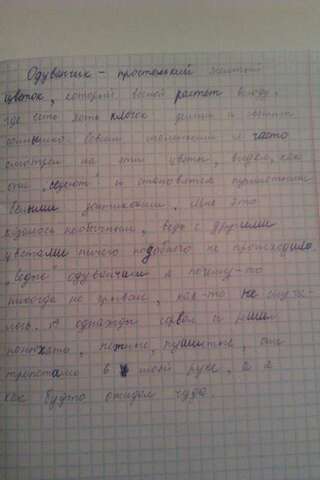 Одуванчик – простенький желтый
цветок, который весной растет всюду,
где есть хоть клочок земли и
солнышко. Совсем маленьким я часто
смотрел на эти цветы, видел, как
они „седеют“ и становятся пушистыми
белыми зонтиками. Мне это
казалось необычным, ведь с другими
цветами ничего подобного не происходило.
одуванчики я почему-то
никогда не срывал, как-то не
А однажды сорвал и решил
понюхать, нежные, пушистые, они
трепетали в моей руке, а я
как будто ожидал чуда.